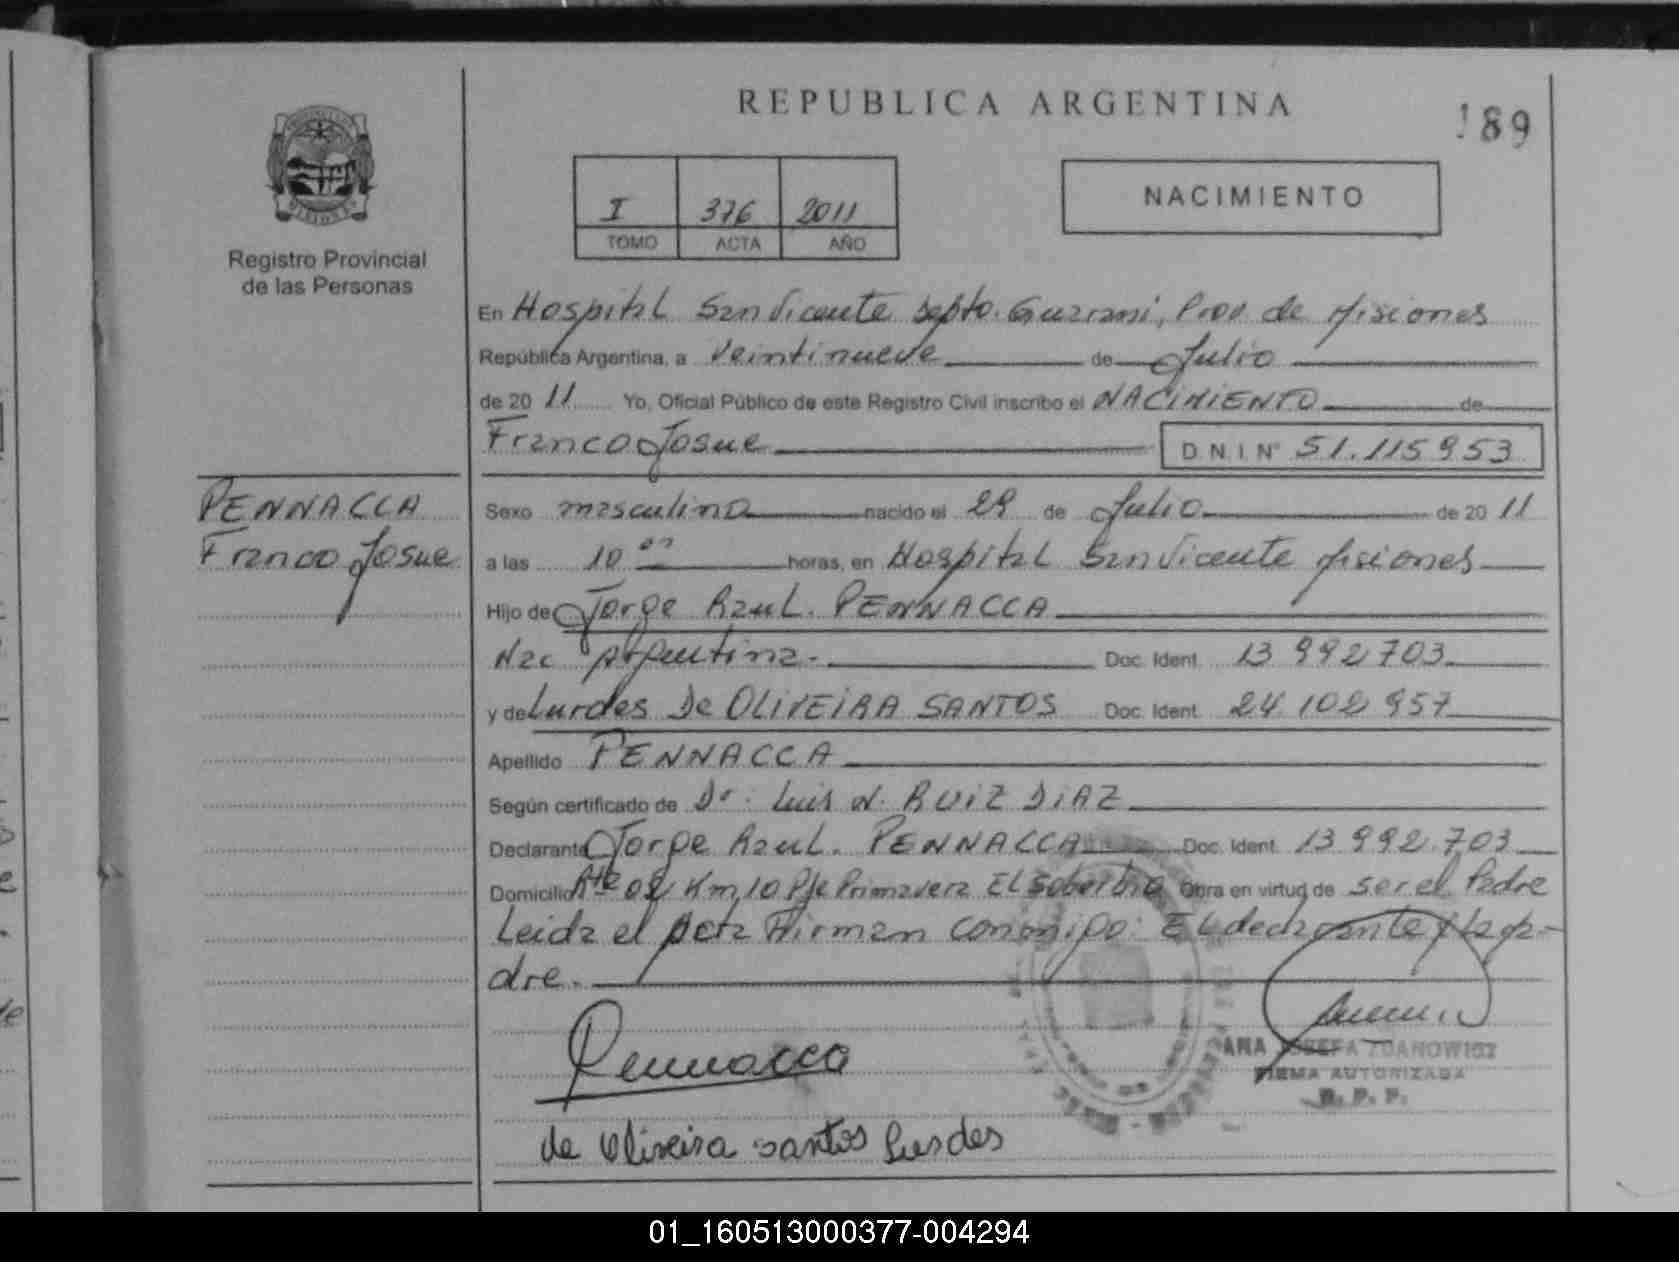 REPUBLICA ARGENTINA
189
I 376 2011
TOMO ACTA AÑO
NACIMIENTO
PROVINCIA
MISIONES
Registro Provincial
de las Personas
En Hospital San Vicente Depto. Guarani, Prov. de Misiones
República Argentina, a Veintinueve de Julio
de 20 11 Yo, Oficial Público de este Registro Civil inscribo el NACIMIENTO de
Franco Josue D.N.I. N° 51.115953
PENNACCA
Franco Josue
Sexo masculino nacido el 29 de Julio de 20 11
a las 10 horas, en Hospital San Vicente Misiones
Hijo de Jorge Raul. PENNACCA
Nac Argentina. Doc. Ident. 13 992 703
y de Lurdes De OLIVEIRA SANTOS Doc. Ident. 24 102 957
Apellido PENNACCA
Según certificado de Dr. Luis N. RUIZ DIAZ
Declarante Jorge Raul. PENNACCA Doc. Ident. 13 992.703
Domicilio Rta 02 Km 10 Pje Primavera El Soberbio Obra en virtud de ser el Padre
Leida el Acta Firman conmigo: El declarante y la ma-
dre.
Pennacca
ANA JOSEFA ZDANOWICZ
FIRMA AUTORIZADA
R. P. P.
de Oliveira santos Lurdes
01_160513000377-004294